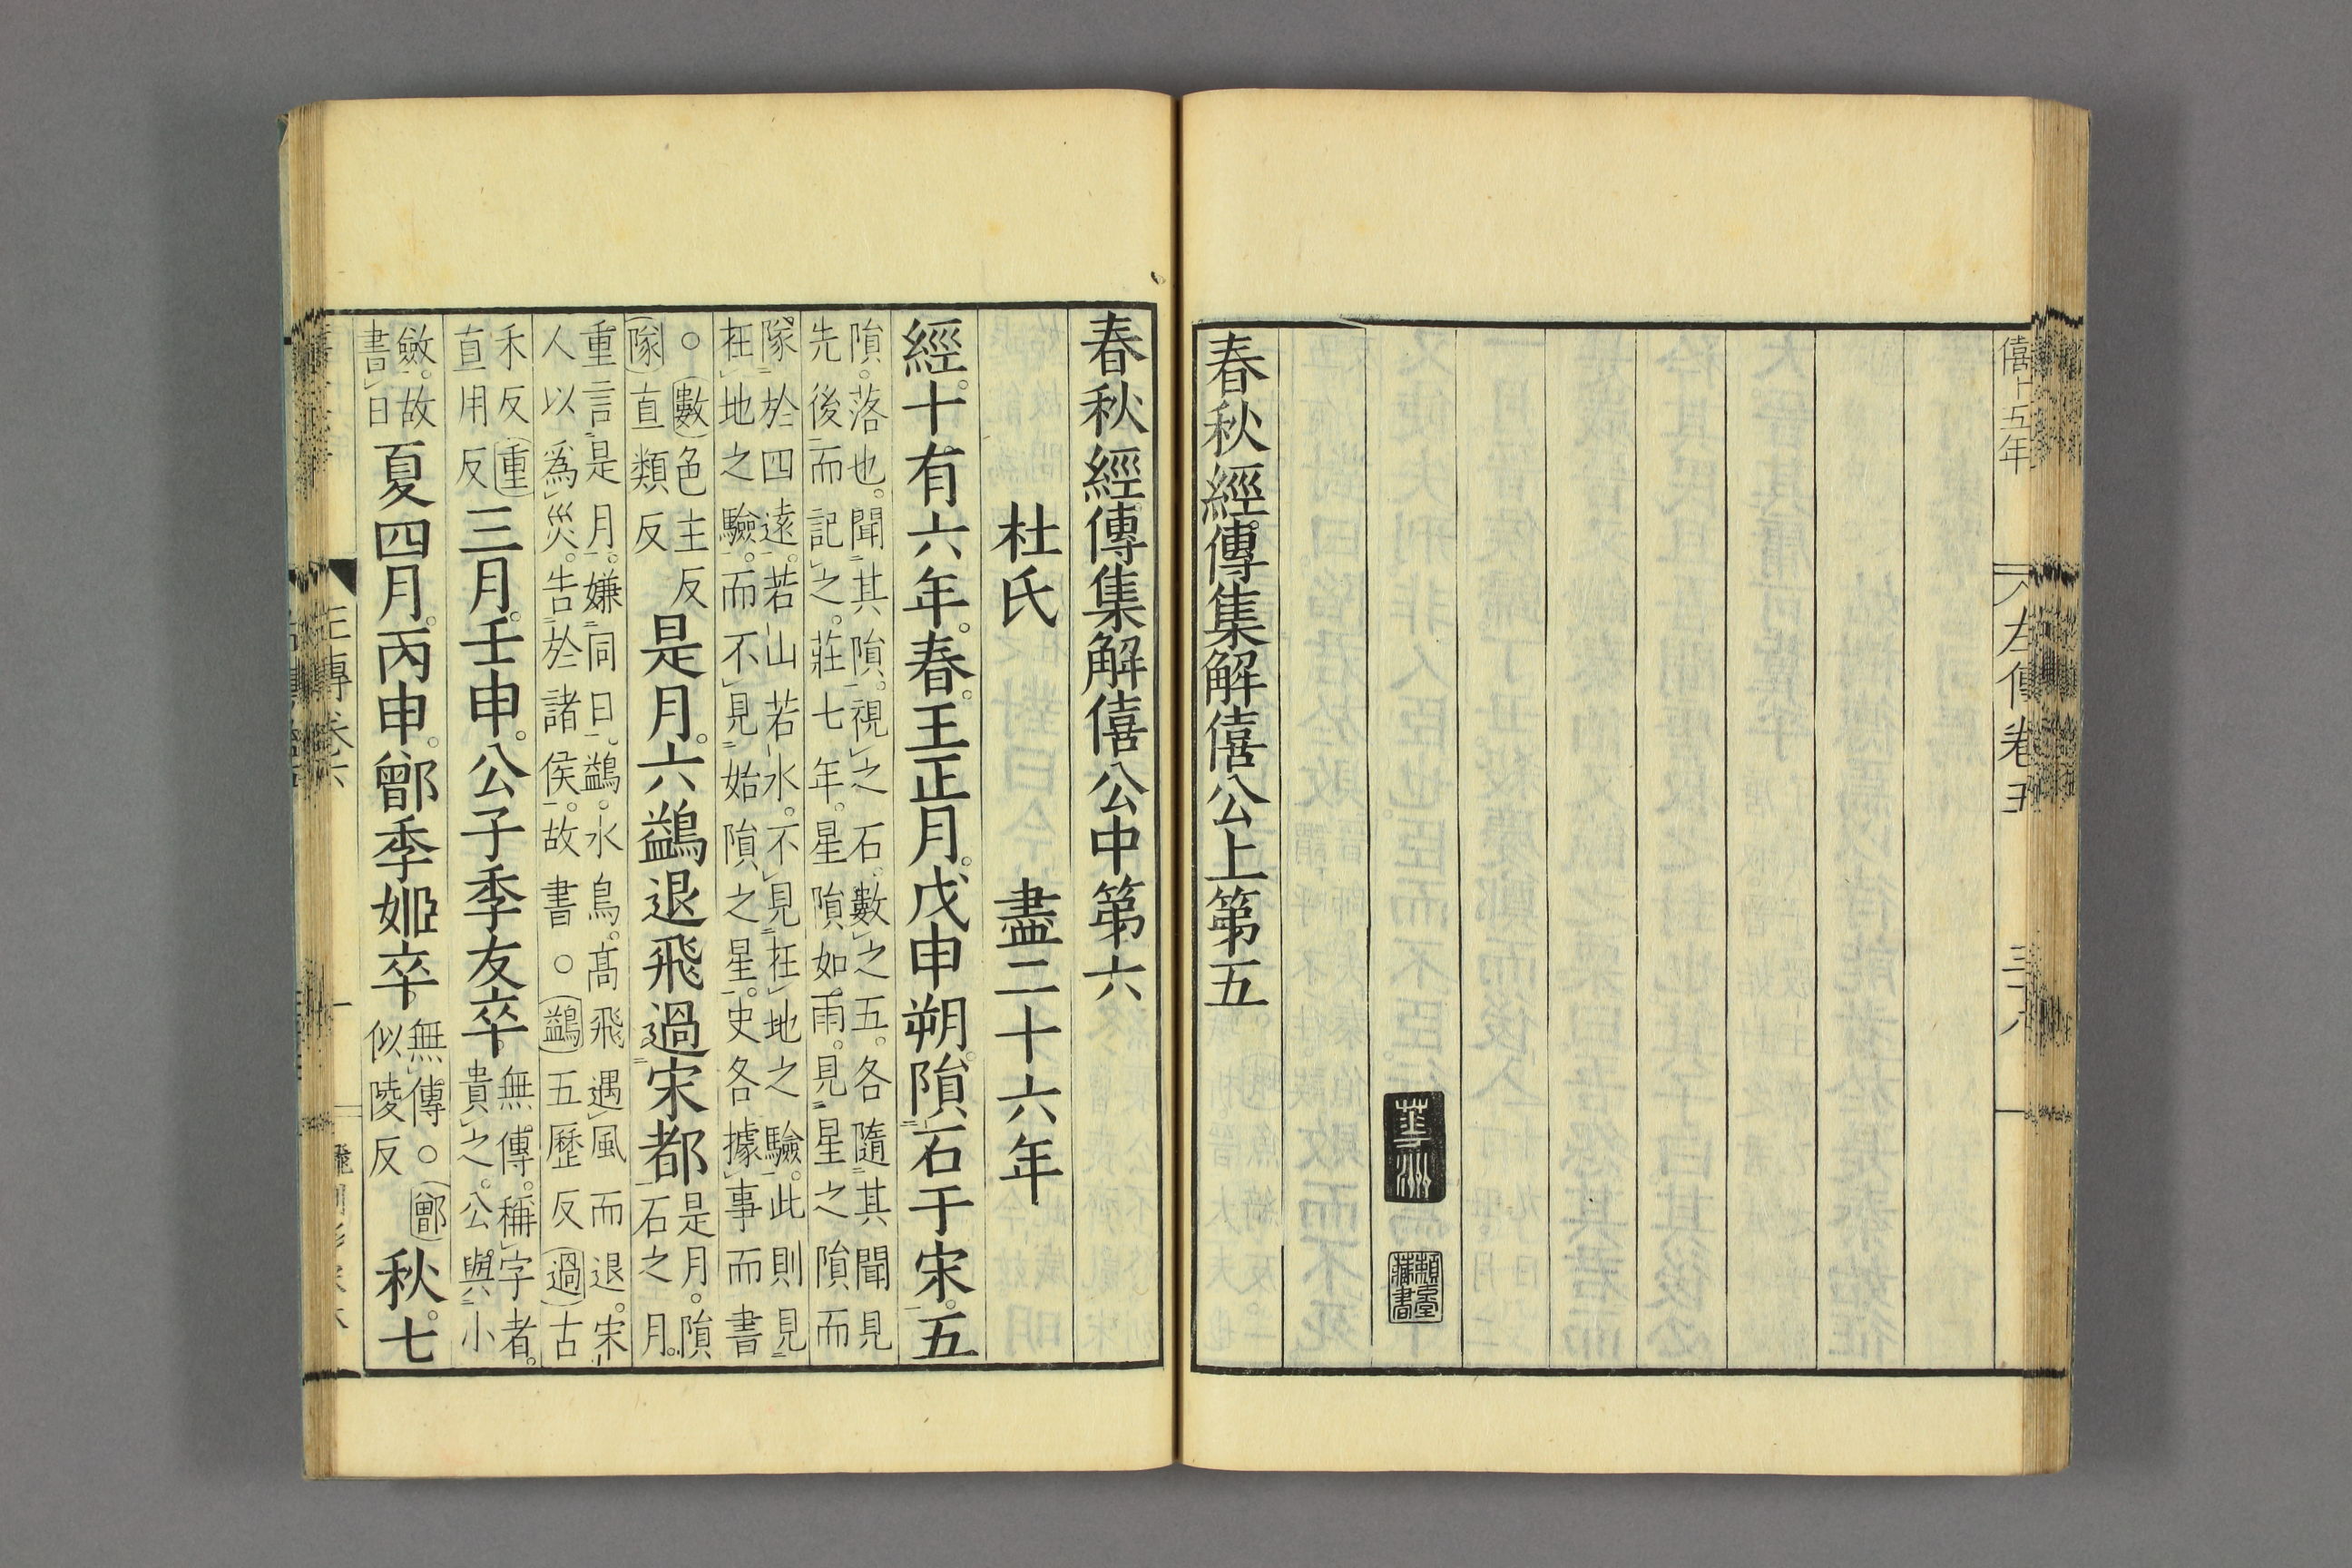 僖十五年
左傳卷五
三十八
春秋經傳集解僖公上第五
春秋經傳集解僖公中第六
杜氏 盡二十六年
經。十有六年。春。王正月。戊申朔。隕石于宋。五
隕。落也。聞其隕。視之石。數之五。各隨其聞見
先後而記之。莊七年。星隕如雨。見星之隕而
隊於四遠。若山若水。不見在地之驗。此則見
在地之驗。而不見始隕之星。史各據事而書
○數色主反
隊直類反
是月。六鷁退飛過宋都
是月。隕
石之月。
重言是月。嫌同日。鷁。水鳥。高飛遇風而退。宋
人以爲災。告於諸侯。故書○鷁五歷反過古
禾反重
直用反
三月。壬申。公子季友卒。
無傳。稱字者。
貴之。公與小
斂。故
書日
夏四月。丙申。鄫季姬卒。
無傳。○鄫
似陵反
秋。七